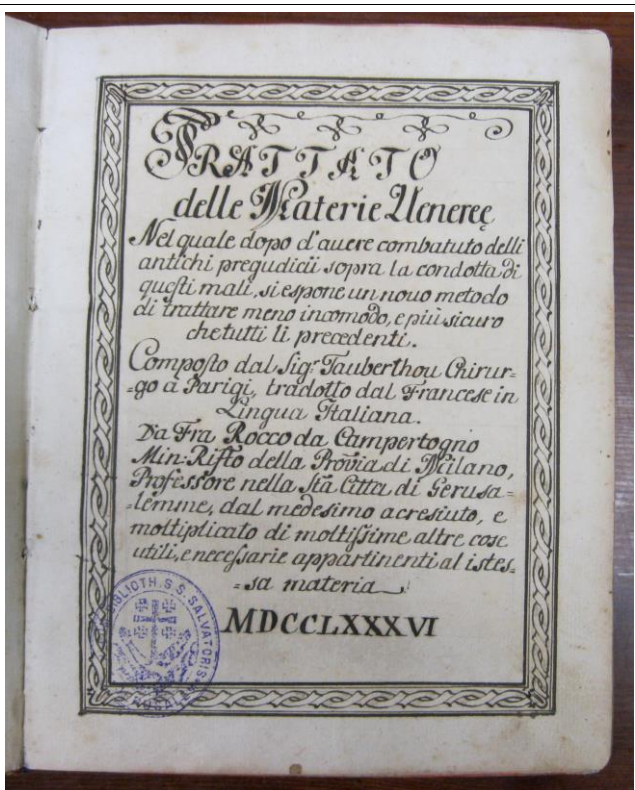 TRATTATO
delle Materie Veneree
Nel quale dopo d'auere combatuto delli
antichi pregudicii sopra la condotta di
questi mali, si espone un nouo metodo
di trattare meno incomodo, e più sicuro
che tutti li precedenti.
Composto dal Sig.r Tauberthou Chirur=
=go à Parigi, tradotto dal Francese in
Lingua Italiana.
Da Fra Rocco da Campertogno
Min: Rifto della Prouia di Milano,
Professore nella Sta Citta di Gerusa=
=lemme, dal medesimo acresiuto, e
moltiplicato di moltissime altre cose
utili, e necessarie appartinenti al istes=
=sa materia
MDCCLXXXVI
BIBLIOTH. S. S. SALVATORIS